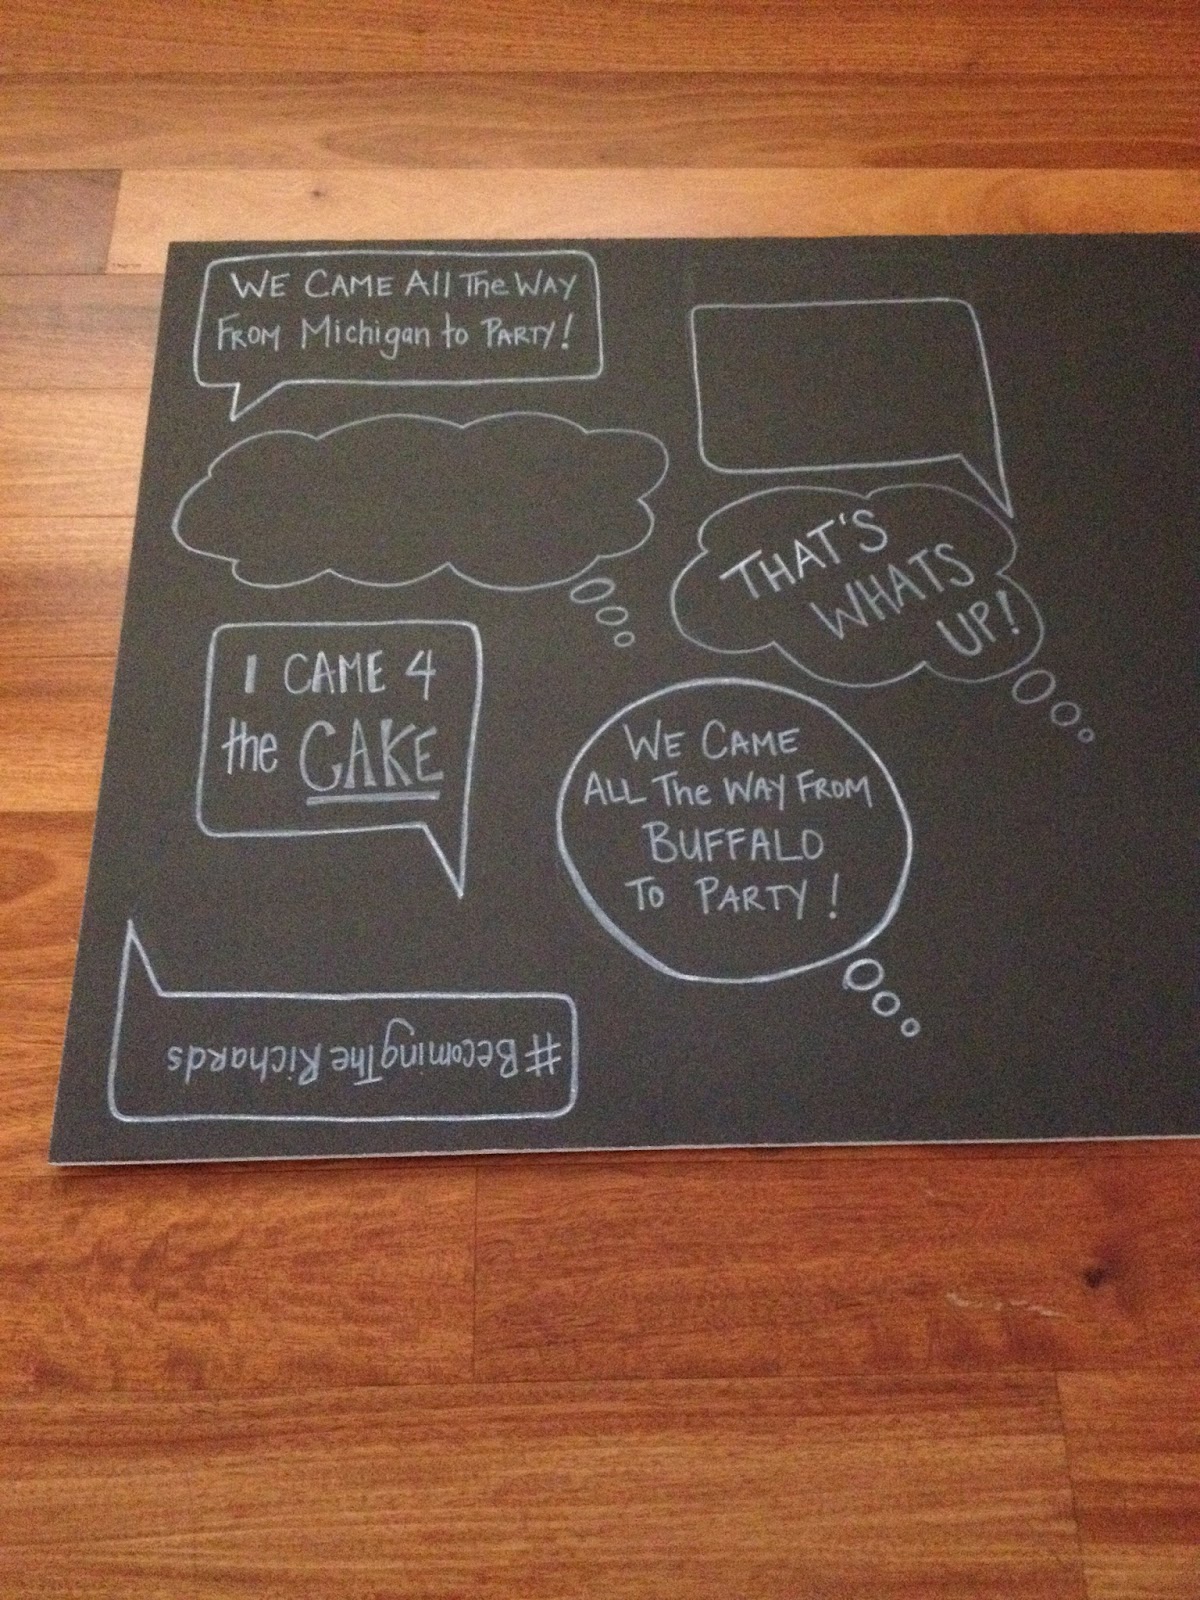 WE CAME All The WAY
FROM Michigan to PARTY!
THAT'S
WHATS
UP!
I CAME 4
the CAKE
WE CAME
ALL The WAY FROM
BUFFALO
TO PARTY!
#BecomingTheRichards